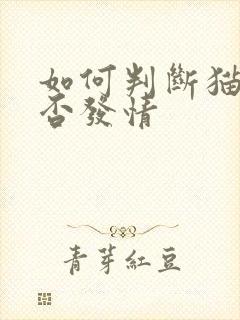 如何判斷猫
否發情
青芽紅豆